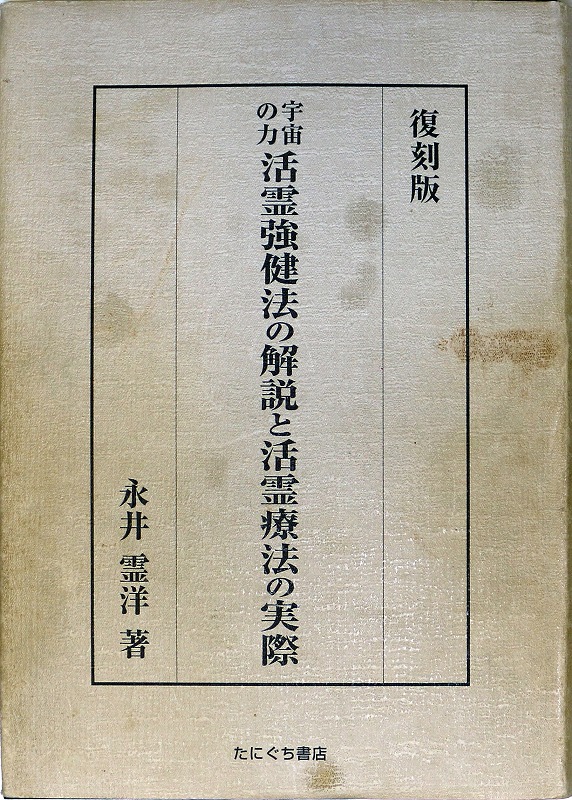 復刻版
宇宙の力 活霊強健法の解説と活霊療法の実際
永井 霊洋 著
たにぐち書店